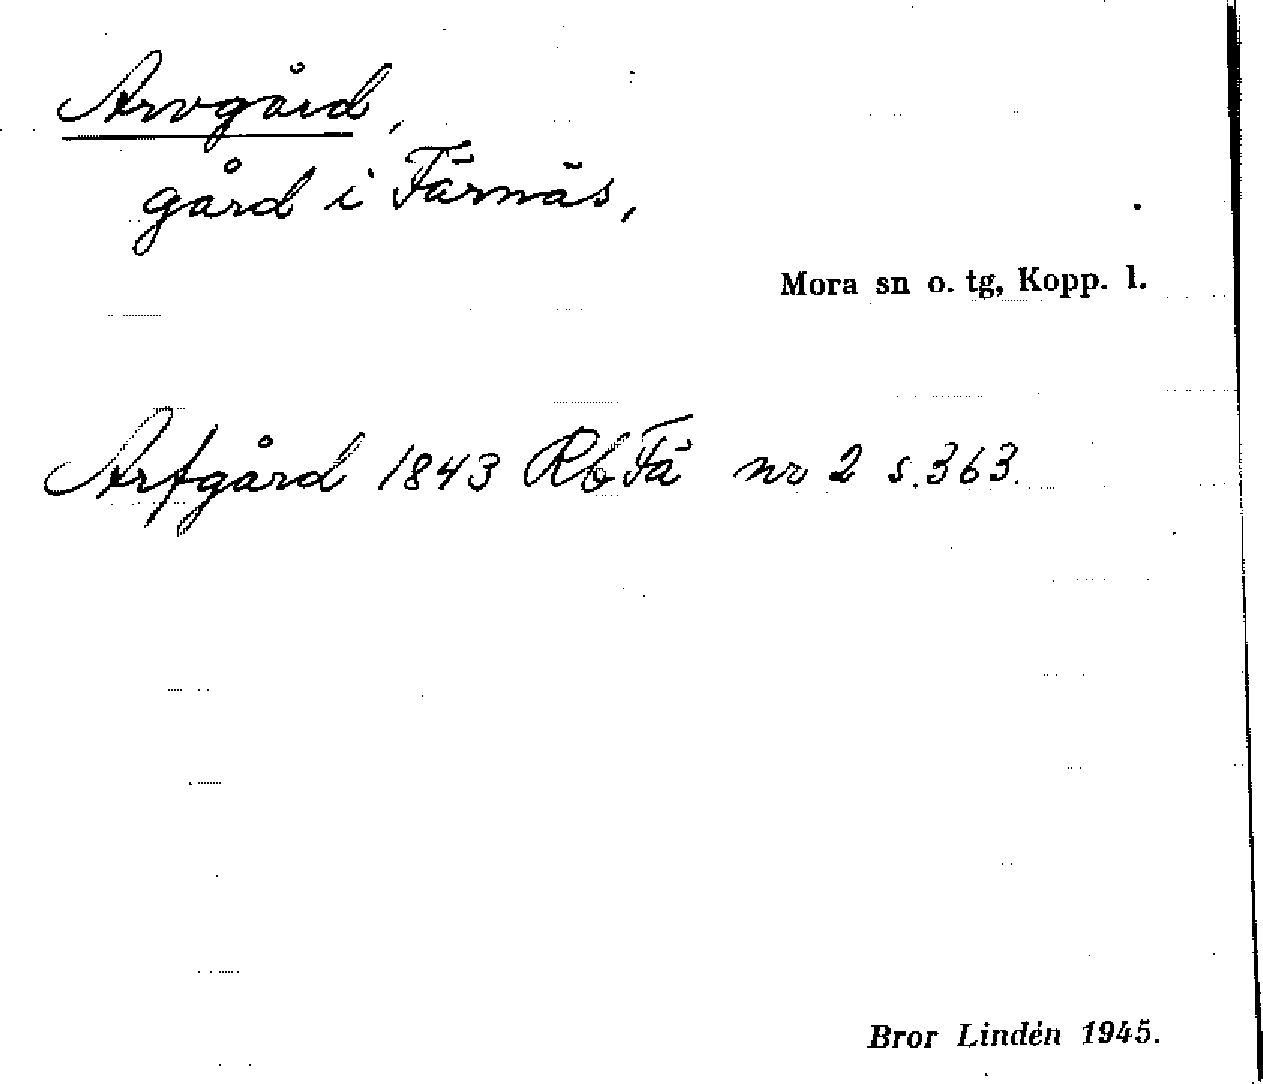 Arvgård,
gård i Färnäs,
Mora sn o. tg, Kopp. l.
Arfgård 1843 Rb Fä nr 2 s. 363.
Bror Lindén 1945.